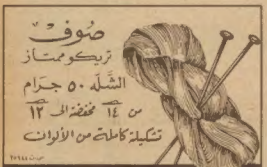 صوف
تريكو ممتاز
الشلّه ٥٠ جرام
من ١٤ مخفضة الى ١٢
تشكيلة كاملة من الألوان